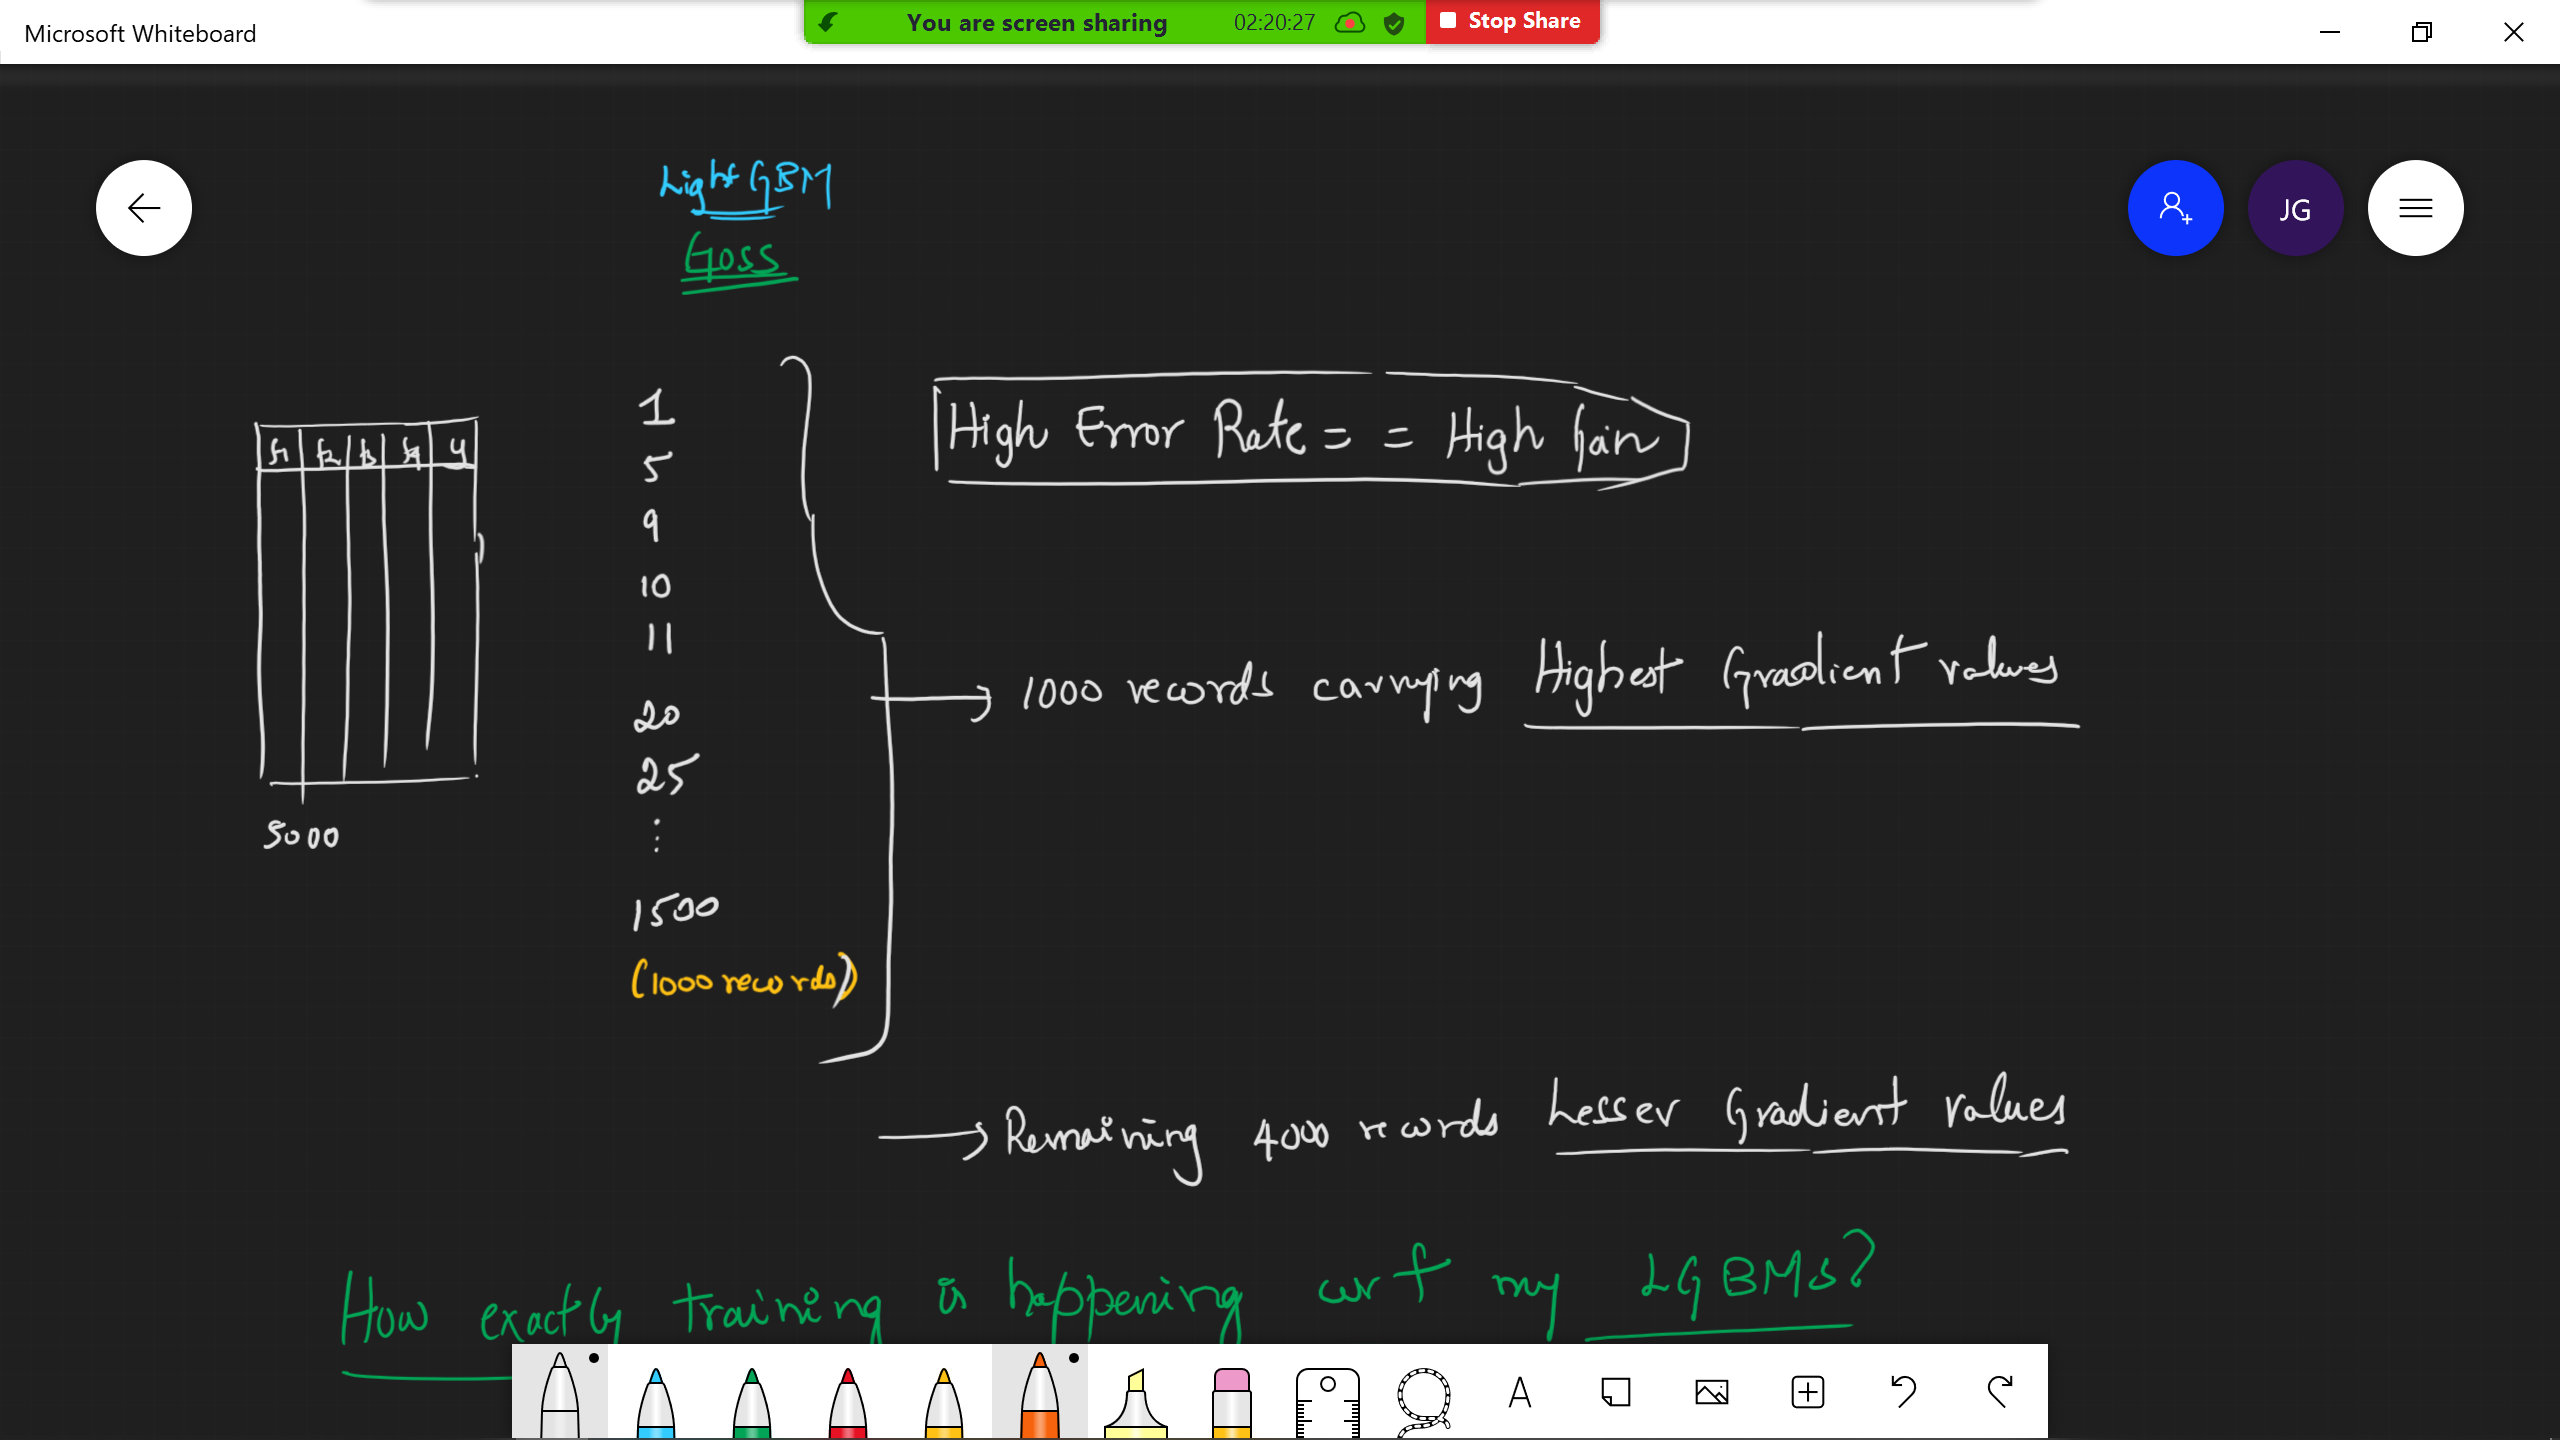 Microsoft Whiteboard
You are screen sharing 02:20:27 Stop Share
JG
LightGBM
Goss
f1 f2 f3 f4 y
5000
1
5
9
10
11
20
25
⋮
1500
(1000 records)
High Error Rate = = High Gain
→ 1000 records carrying Highest Gradient values
→ Remaining 4000 records Lesser Gradient values
How exactly training is happening wrt my LGBMs?